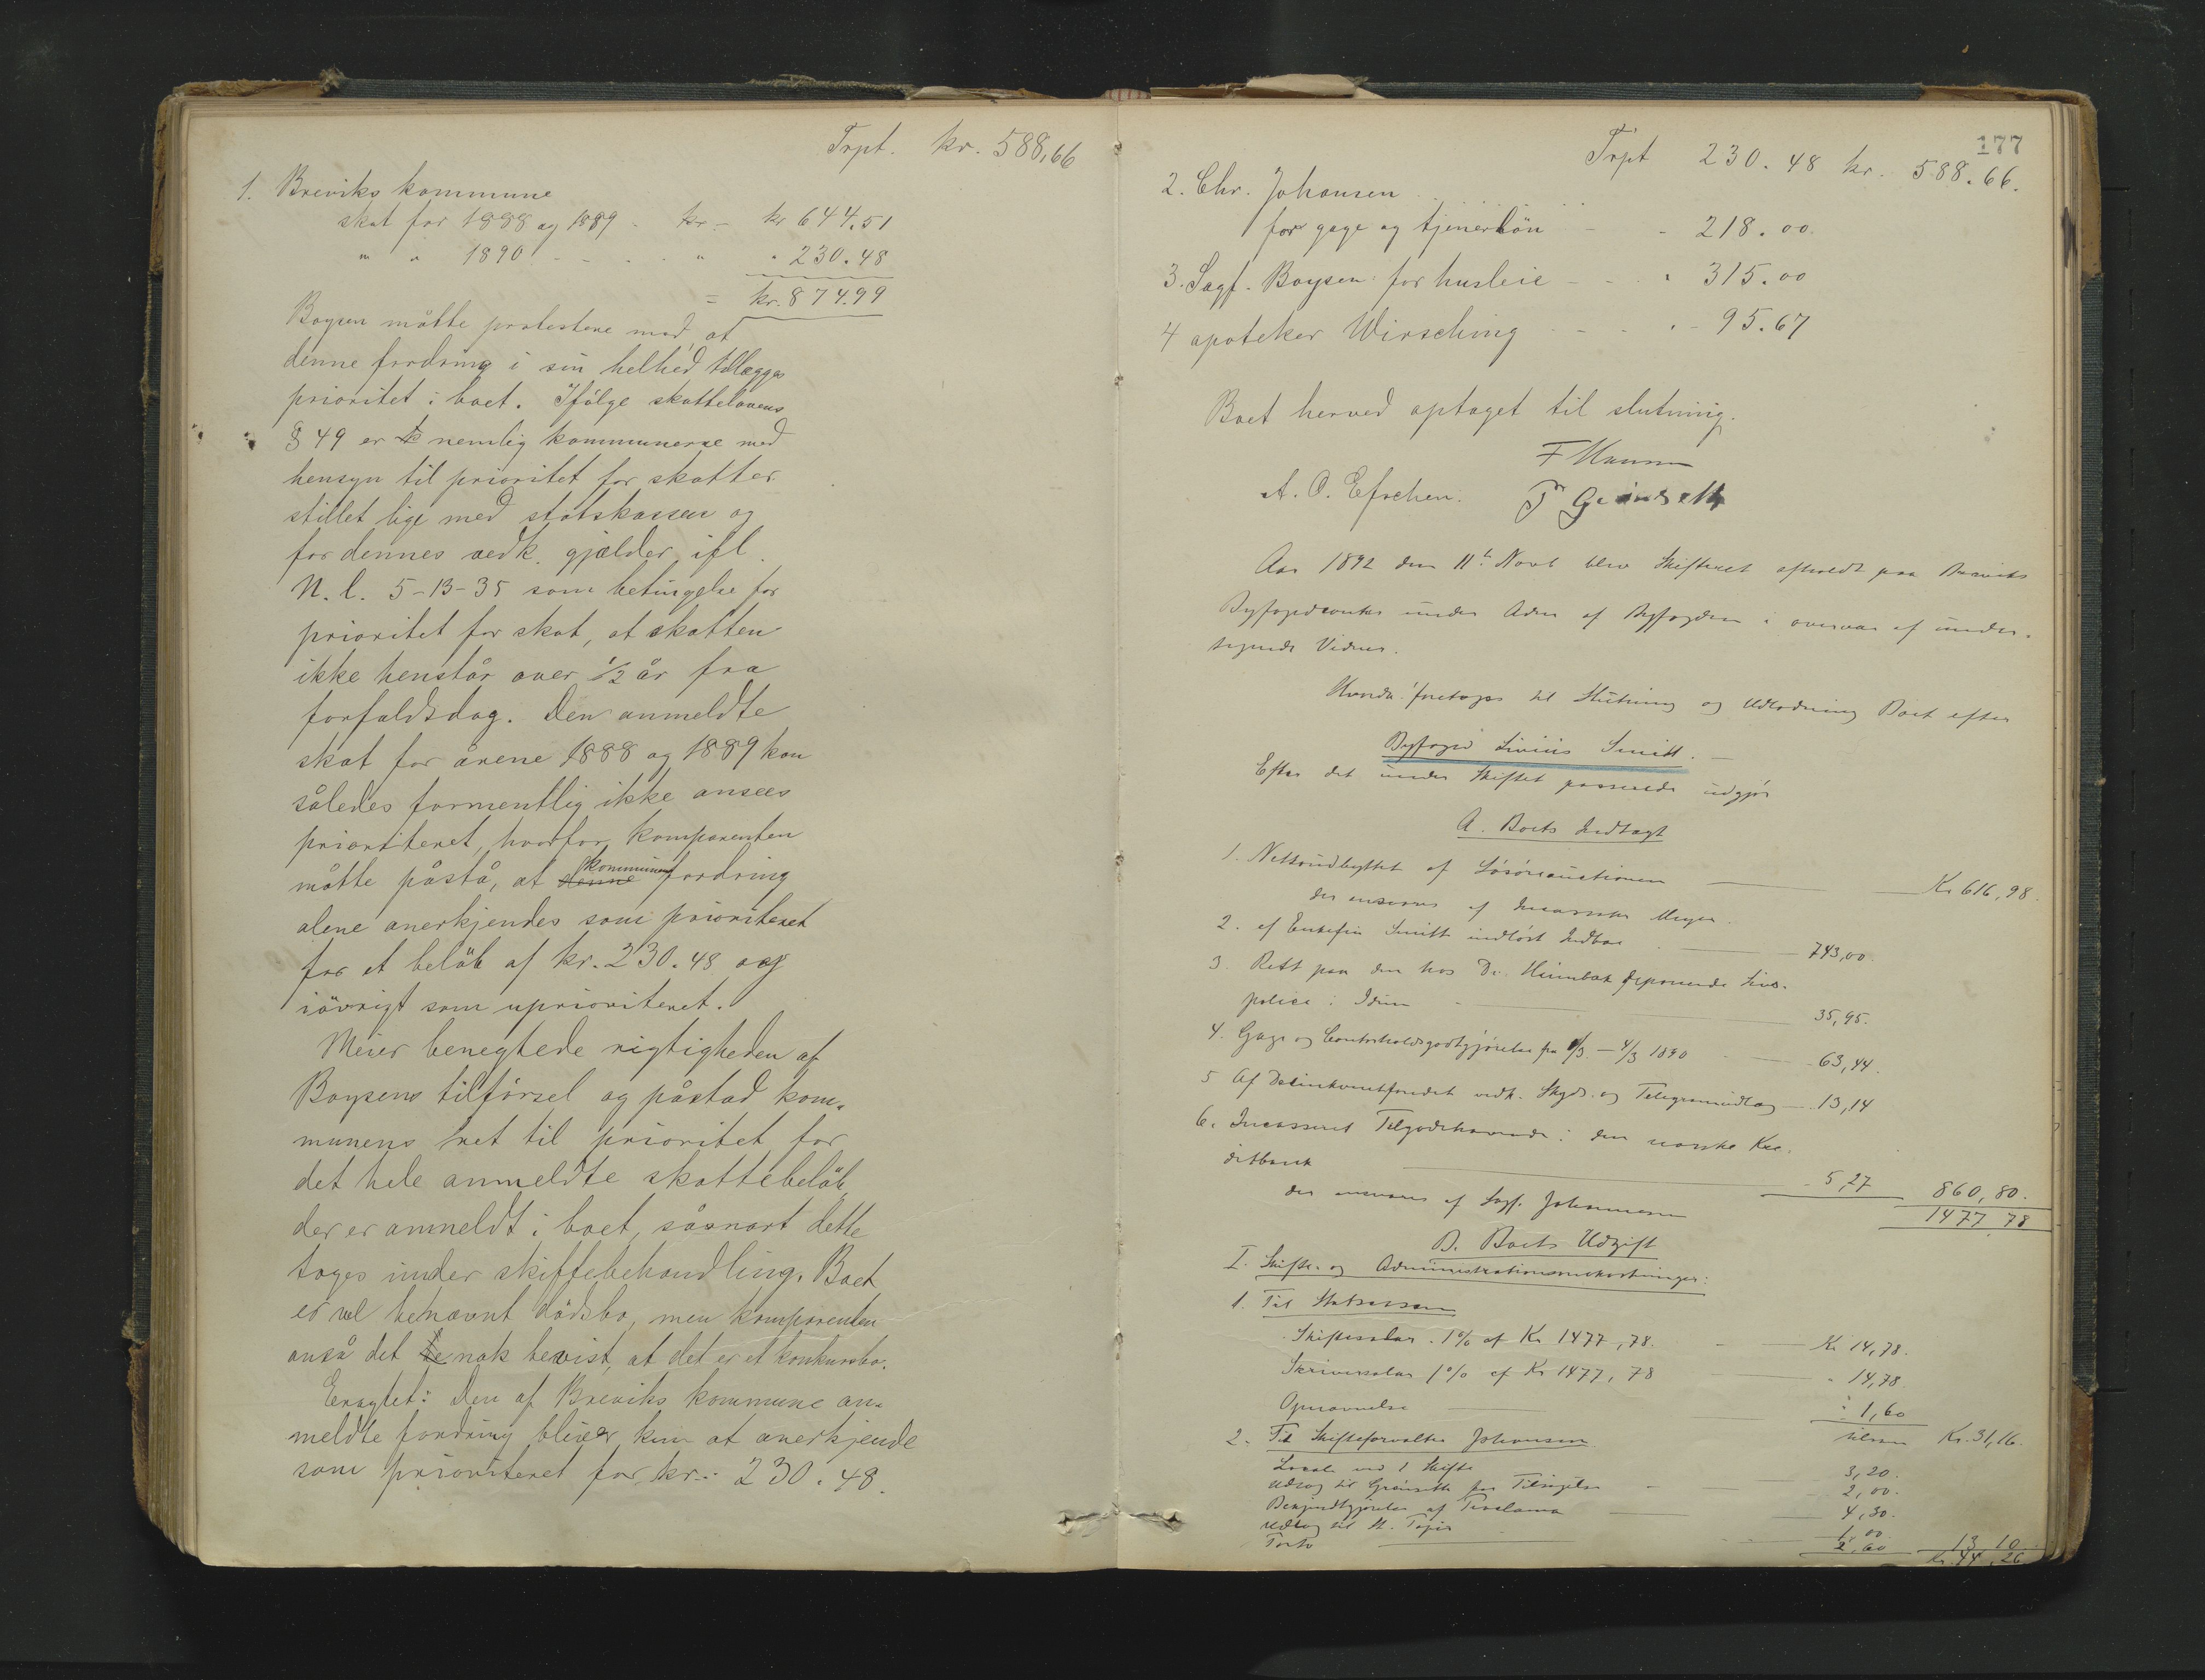 Trpt. kr. 588,66
1. Breviks kommune
skat for 1888 og 1889 - kr - kr 644.51
" " 1890 - - - " " 230.48
= kr. 874.99
Boysen måtte protestere mod, at
denne fordring i sin helhed tillægges
prioritet i boet. Ifølge skattelovens
§ 49 er nemlig kommunerne med
hensyn til prioritet for skatter
stillet lige med statskassen og
for dennes vedk. gjælder ifl.
N. l. 5-13-35 som betingelse for
prioritet for skat, at skatten
ikke henstår over 1/2 år fra
forfaldsdag. Den anmeldte
skat for årene 1888 og 1889 kan
således formentlig ikke ansees
prioriteret, hvorfor komparenten
måtte påstå, at denne kommunens fordring
alene anerkjendes som prioriteret
for et beløb af kr. 230.48 og
iøvrigt som uprioriteret.
Meier benegtede rigtigheden af
Boysens tilførsel og påstod kom-
munens ret til prioritet for
det hele anmeldte skattebeløb,
der er anmeldt i boet, såsnart dette
toges under skiftebehandling. Boet
er vel benævnt dødsbo, men komparenten
anså det nok bevist, at det er et konkursbo.
Eragtet: Den af Breviks kommune an-
meldte fordring bliver kun at anerkjende
som prioriteret for kr.: 230.48.
177
Trpt 230.48 kr. 588.66.
2. Chr. Johansen
for gage og tjenerløn - - 218.00
3. Sagf. Boysen for husleie - - " 315.00
4 apoteker Wirsching - - " - 95.67
Boet herved optaget til slutning.
F Hansen
A. O. Efschen. T Grinseth
Aar 1892 den 11te Novb blev Skifteret afholdt paa Breviks
Byfogedcontor under Adm af Byfogden i overvær af under-
tegnede Vidner.
Hvorda foretoges til Slutning og Udlodning Boet efter
Byfoged Livius Smitt. -
Efter det under Skiftet passerede udgjør
A. Boets Indtægt
1. Nettoudbyttet af Løsøreauctionen Kr 616,98.
der ansvares af Incassator Meyer.
2. af Enkefru Smitt indløst Indbo 743,00.
3. Rest paa den hos Dr. Heimbeck deponerede Livs-
police i Idun 35,95.
4. Gage og Contorholdsgodtgjørelse fra 1/3 - 4/3 1890 - 63,44.
5 Af Delinkventfondet vedk. Skyds- og Telegramudlæg - 13,14
6. Incasseret Tilgodehavende i den norske Kre-
ditbank - 5,27 860,80.
der ansvares af Sagf. Johannesen 1477,78
B. Boets Udgift
I. Skifte- og Administrationsomkostninger:
1. Til Statscassen
Skiftesalær 1% af Kr 1477,78. - Kr 14,78.
Skriversalær 1% af Kr 1477,78 " 14,78
Opnævnelse " 1,60
tilsam Kr. 31,16.
2. Til Skifteforvalter Johansen
Locale ved 1 Skifte 3,20.
Udlæg til Grinseth for Tilsigelse 2,00.
Bekjendtgjørelse af Proclama 4,30.
Udlæg til 1,00.
Porto 2,60 13,10
Kr. 44,26